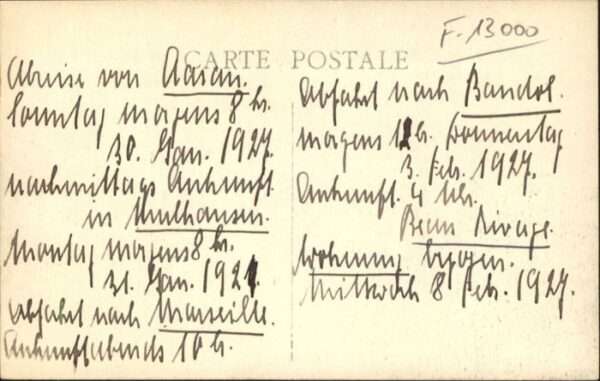 F. 13000
CARTE POSTALE
Abreise von Aarau.
Sonntag morgens 8 hr.
30. Jan. 1927.
nachmittags Ankunft
in Mulhausen.
Montag morgens 8 hr.
31. Jan. 1927.
Abfahrt nach Marseille.
Ankunft abends 10 hr.
Abfahrt nach Bandol.
morgens hr. Donnerstag
3. Feb. 1927.
Ankunft. 4 Uhr.
Beau Rivage.
Wohnung bezogen.
Mittwoch 8 Feb. 1927.